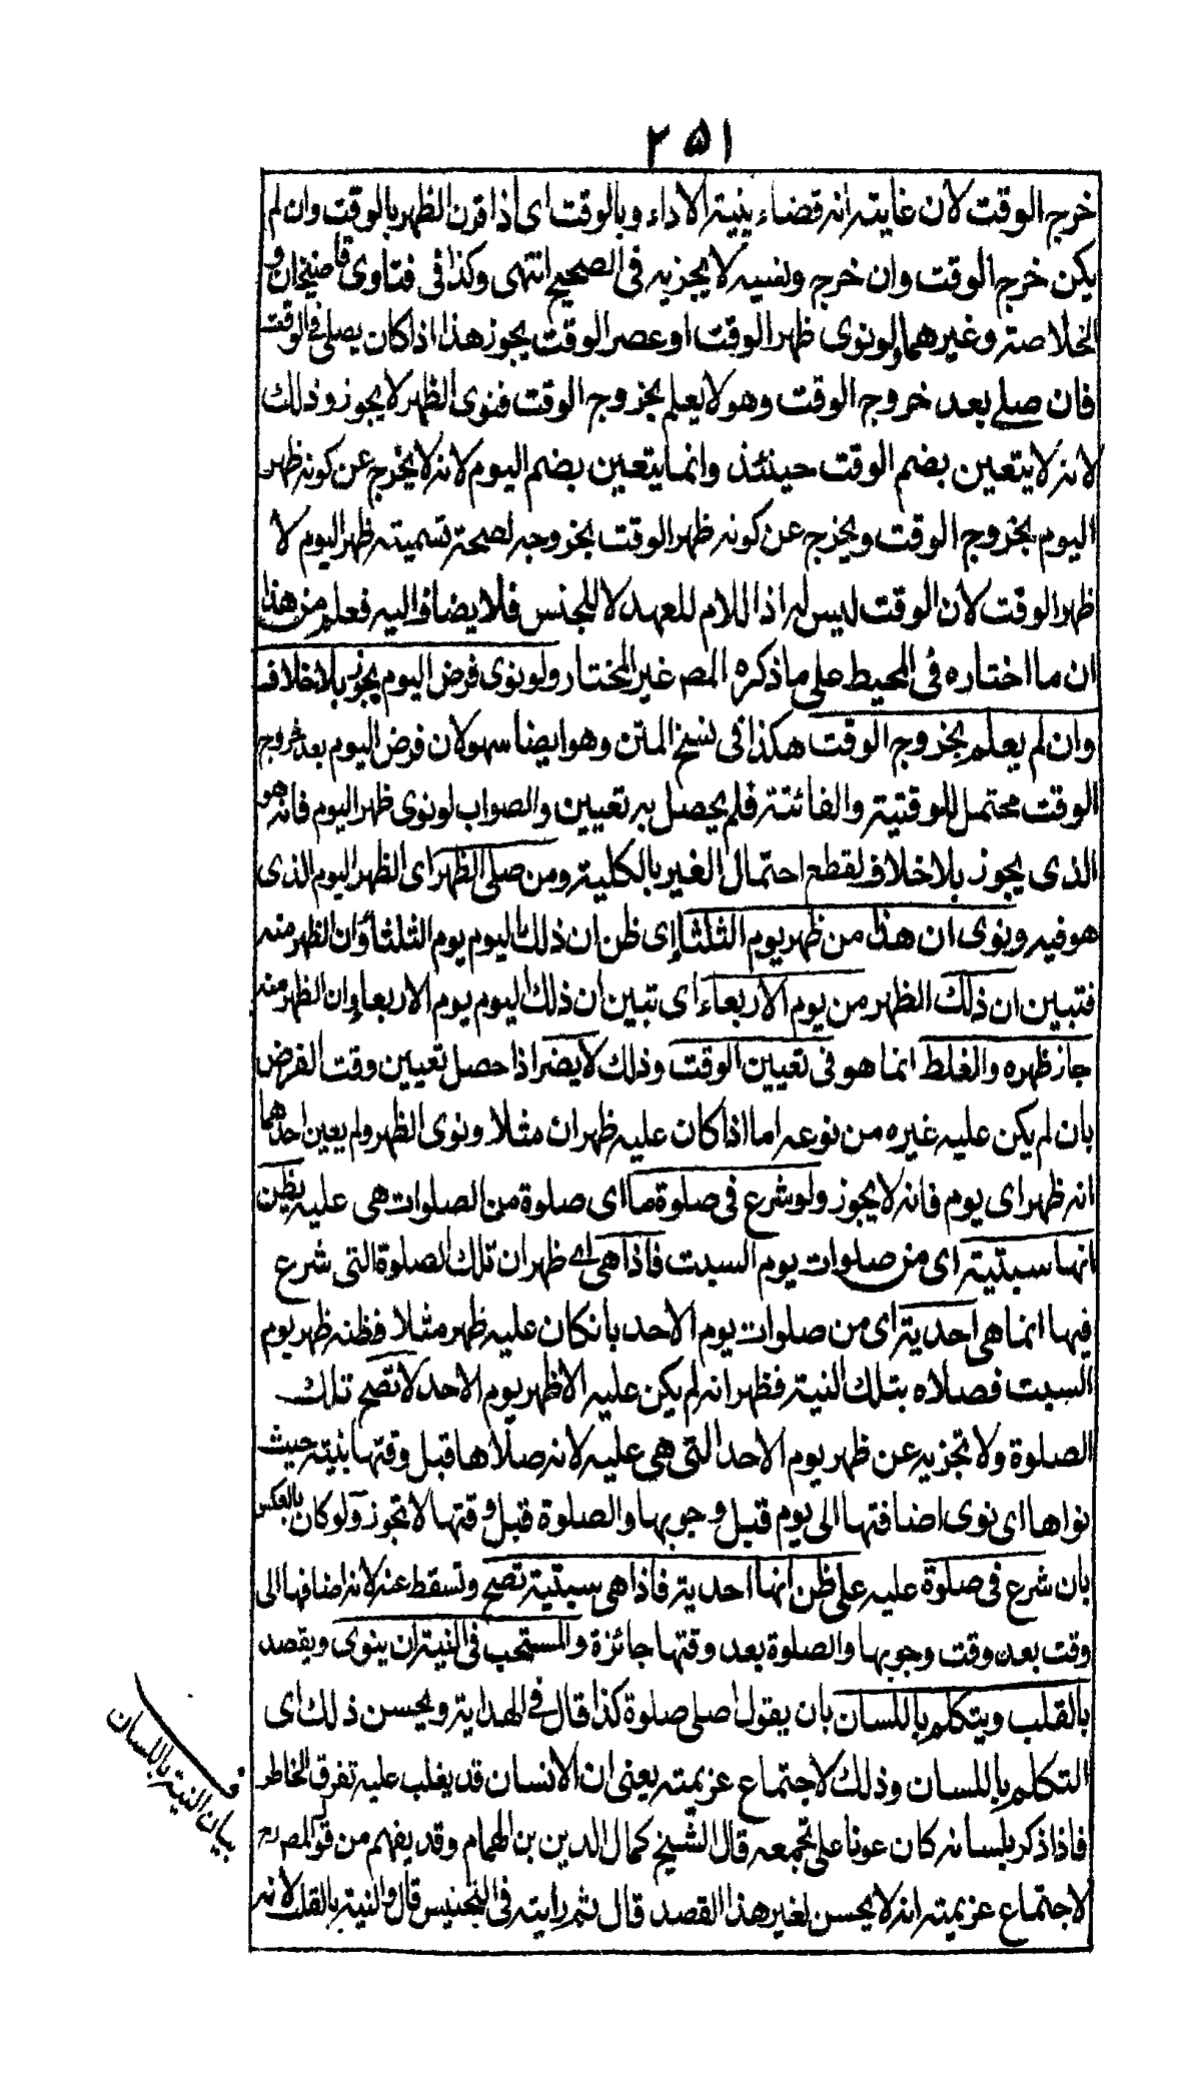 ٢٥١
خرج الوقت لان غايته انه قضاء بنية الاداء وبالوقت اى اذا قرن الظهر بالوقت وان لم
يكن خرج الوقت وان خرج ونسيه لا يجزيه فى الصحيح انتهى وكذا فى فتاوى قاضيخان و
الخلاصة وغيرهما ولو نوى ظهر الوقت او عصر الوقت يجوز هذا اذا كان يصلى فى الوقت
فان صلے بعد خروج الوقت وهو لا يعلم بخروج الوقت فنوى الظهر لا يجوز وذلك
لانه لا يتعين بضم الوقت حينئذ وانما يتعين بضم اليوم لانه لا يخرج عن كونه ظهر
اليوم بخروج الوقت ويخرج عن كونه ظهر الوقت بخروجه لصحة تسميته ظهر اليوم لا
ظهر الوقت لان الوقت ليس له اذا اللام للعهد لا للجنس فلا يضاف اليه فعلم من هذا
ان ما اختاره فى المحيط على ما ذكره المص غير المختار ولو نوى فرض اليوم يجوز بلا خلاف
وان لم يعلم بخروج الوقت هكذا فى نسخ المتن وهو ايضا سهو لان فرض اليوم بعد خروج
الوقت محتمل للوقتية والفائتة فلم يحصل به تعيين والصواب لو نوى ظهر اليوم فانه هو
الذى يجوز بلا خلاف لقطع احتمال الغير بالكلية ومن صلى الظهر اى الظهر اليوم الذى
هو فيه ونوى ان هذا من ظهر يوم الثلثاء اى ظن ان ذلك اليوم يوم الثلثاء وان الظهر منه
فتبين ان ذلك الظهر من يوم الاربعاء اى تبين ان ذلك اليوم يوم الاربعاء وان الظهر منه
جاز ظهره والغلط انما هو فى تعيين الوقت وذلك لا يضر اذا حصل تعيين وقت الفرض
بان لم يكن عليه غيره من نوعه اما اذا كان عليه ظهران مثلا ونوى الظهر ولم يعين احدهما
انه ظهر اى يوم فانه لا يجوز ولو شرع فى صلوة ما اى صلوة من الصلوات هى عليه يظن
انها سبتية اى من صلوات يوم السبت فاذا هى اے ظهر ان تلك الصلوة التى شرع
فيها انما هى احدية اى من صلوات يوم الاحد بانكان عليه ظهر مثلا فظنه ظهر يوم
السبت فصلاه بتلك النية فظهر انه لم يكن عليه الا ظهر يوم الاحد لا تصح تلك
الصلوة ولا تجزيه عن ظهر يوم الاحد التى هى عليه لانه صلاها قبل وقتها بنيته حيث
نواها اى نوى اضافتها الى يوم قبل وجوبها والصلوة قبل وقتها لا تجوز ولو كان بالعكس
بان شرع فى صلوة عليه على ظن انها احدية فاذا هى سبتية تصح وتسقط عنه لانه اضافها الى
وقت بعد وقت وجوبها والصلوة بعد وقتها جائزة والمستحب فى النية ان ينوى ويقصد
بالقلب ويتكلم باللسان بان يقول اصلى صلوة كذا قال فے الهداية ويحسن ذلك اى
التكلم باللسان وذلك لاجتماع عزيمته يعنى ان الانسان قد يغلب عليه تفرق الخاطر
فاذا ذكر بلسانه كان عونا على تجمعه قال الشيخ كمال الدين بن الهمام وقد يفهم من قول المصره
لاجتماع عزيمته انه لا يحسن لغير هذا القصد قال ثم رايته فى التجنيس قال والنية بالقلب لانه
بيان النية باللسان